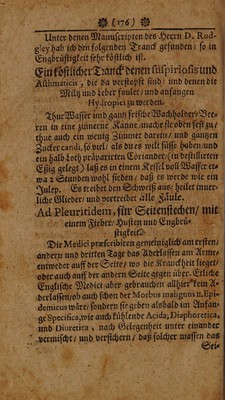 (176)
Unter denen Manuscripten des Herrn D. Rud-
gley hab ich den folgenden Tranck gefunden/ so in
Engbrüstigkeit sehr köstlich ist.
Ein köstlicher Tranck denen suspiriosis und
Asthmaticis, die da verstopft sind/ und denen die
Miltz und Leber faulet/ und anfangen
Hydropici zu werden.
Thue Wasser und gantz frische Wachholder-Bee-
ren in eine zinnerne Kanne/ mache sie oben fest zu/
thue auch ein wenig Zimmet darein/ und gantzen
Zucker candi, so viel/ als du es wilt süsse haben/ und
ein halb Loth præparirten Coriander (in destillirten
Eßig gelegt) laß es in einem Kessel voll Wasser et-
wa 2 Stunden wohl sieden/ daß es werde wie ein
Julep. Es treibet den Schweiß aus/ heilet inner-
liche Glieder/ und vertreibet alle Fäule.
Ad Pleuritidem, für Seitenstechen/ mit
einem Fieber/ Husten und Engbrü-
stigkeit.
Die Medici præscribiren gemeiniglich am ersten/
andern und dritten Tage das Aderlassen am Arme/
entweder auff der Seite/ wo die Kranckheit lieget/
oder auch auff der andern Seite gegen über. Etliche
Englische Medici aber gebrauchen allhier kein A-
derlassen/ ob auch schon der Morbus malignus u. Epi-
demicus wäre/ sondern sie geben alsobald im Anfan-
ge Specifica, wie auch kühlende Acida, Diaphoretica,
und Diuretica, nach Gelegenheit unter einander
vermischt/ und versichern/ daß solcher massen das
Sei-